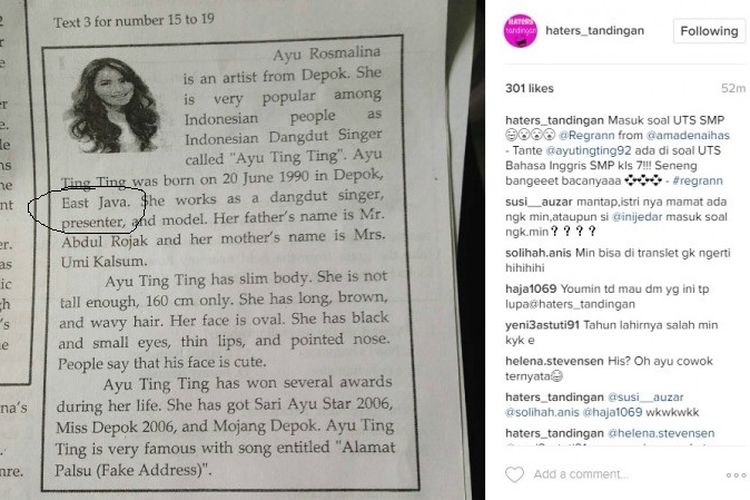 Text 3 for number 15 to 19
Ayu Rosmalina
is an artist from Depok. She
is very popular among
Indonesian people as
Indonesian Dangdut Singer
called "Ayu Ting Ting". Ayu
Ting Ting was born on 20 June 1990 in Depok,
East Java. She works as a dangdut singer,
presenter, and model. Her father's name is Mr.
Abdul Rojak and her mother's name is Mrs.
Umi Kalsum.
Ayu Ting Ting has slim body. She is not
tall enough, 160 cm only. She has long, brown,
and wavy hair. Her face is oval. She has black
and small eyes, thin lips, and pointed nose.
People say that his face is cute.
Ayu Ting Ting has won several awards
during her life. She has got Sari Ayu Star 2006,
Miss Depok 2006, and Mojang Depok. Ayu Ting
Ting is very famous with song entitled "Alamat
Palsu (Fake Address)".
HATERS
tandingan
haters_tandingan
Following
301 likes
52m
haters_tandingan Masuk soal UTS SMP
😂😮😮😮 @Regrann from @amadenaihas
- Tante @ayutingting92 ada di soal UTS
Bahasa Inggris SMP kls 7!!! Seneng
bangeeet bacanyaaa - #regrann
susi__auzar mantap,istri nya mamat ada
ngk min,ataupun si @inijedar masuk soal
ngk.min❓❓❓❓
solihah.anis Min bisa di translet gk ngerti
hihihihi
haja1069 Youmin td mau dm yg ini tp
lupa@haters_tandingan
yeni3astuti91 Tahun lahirnya salah min
kyk e
helena.stevensen His? Oh ayu cowok
ternyata😂
haters_tandingan @susi__auzar
@solihah.anis @haja1069 wkwkwkk
haters_tandingan @helena.stevensen
Add a comment...